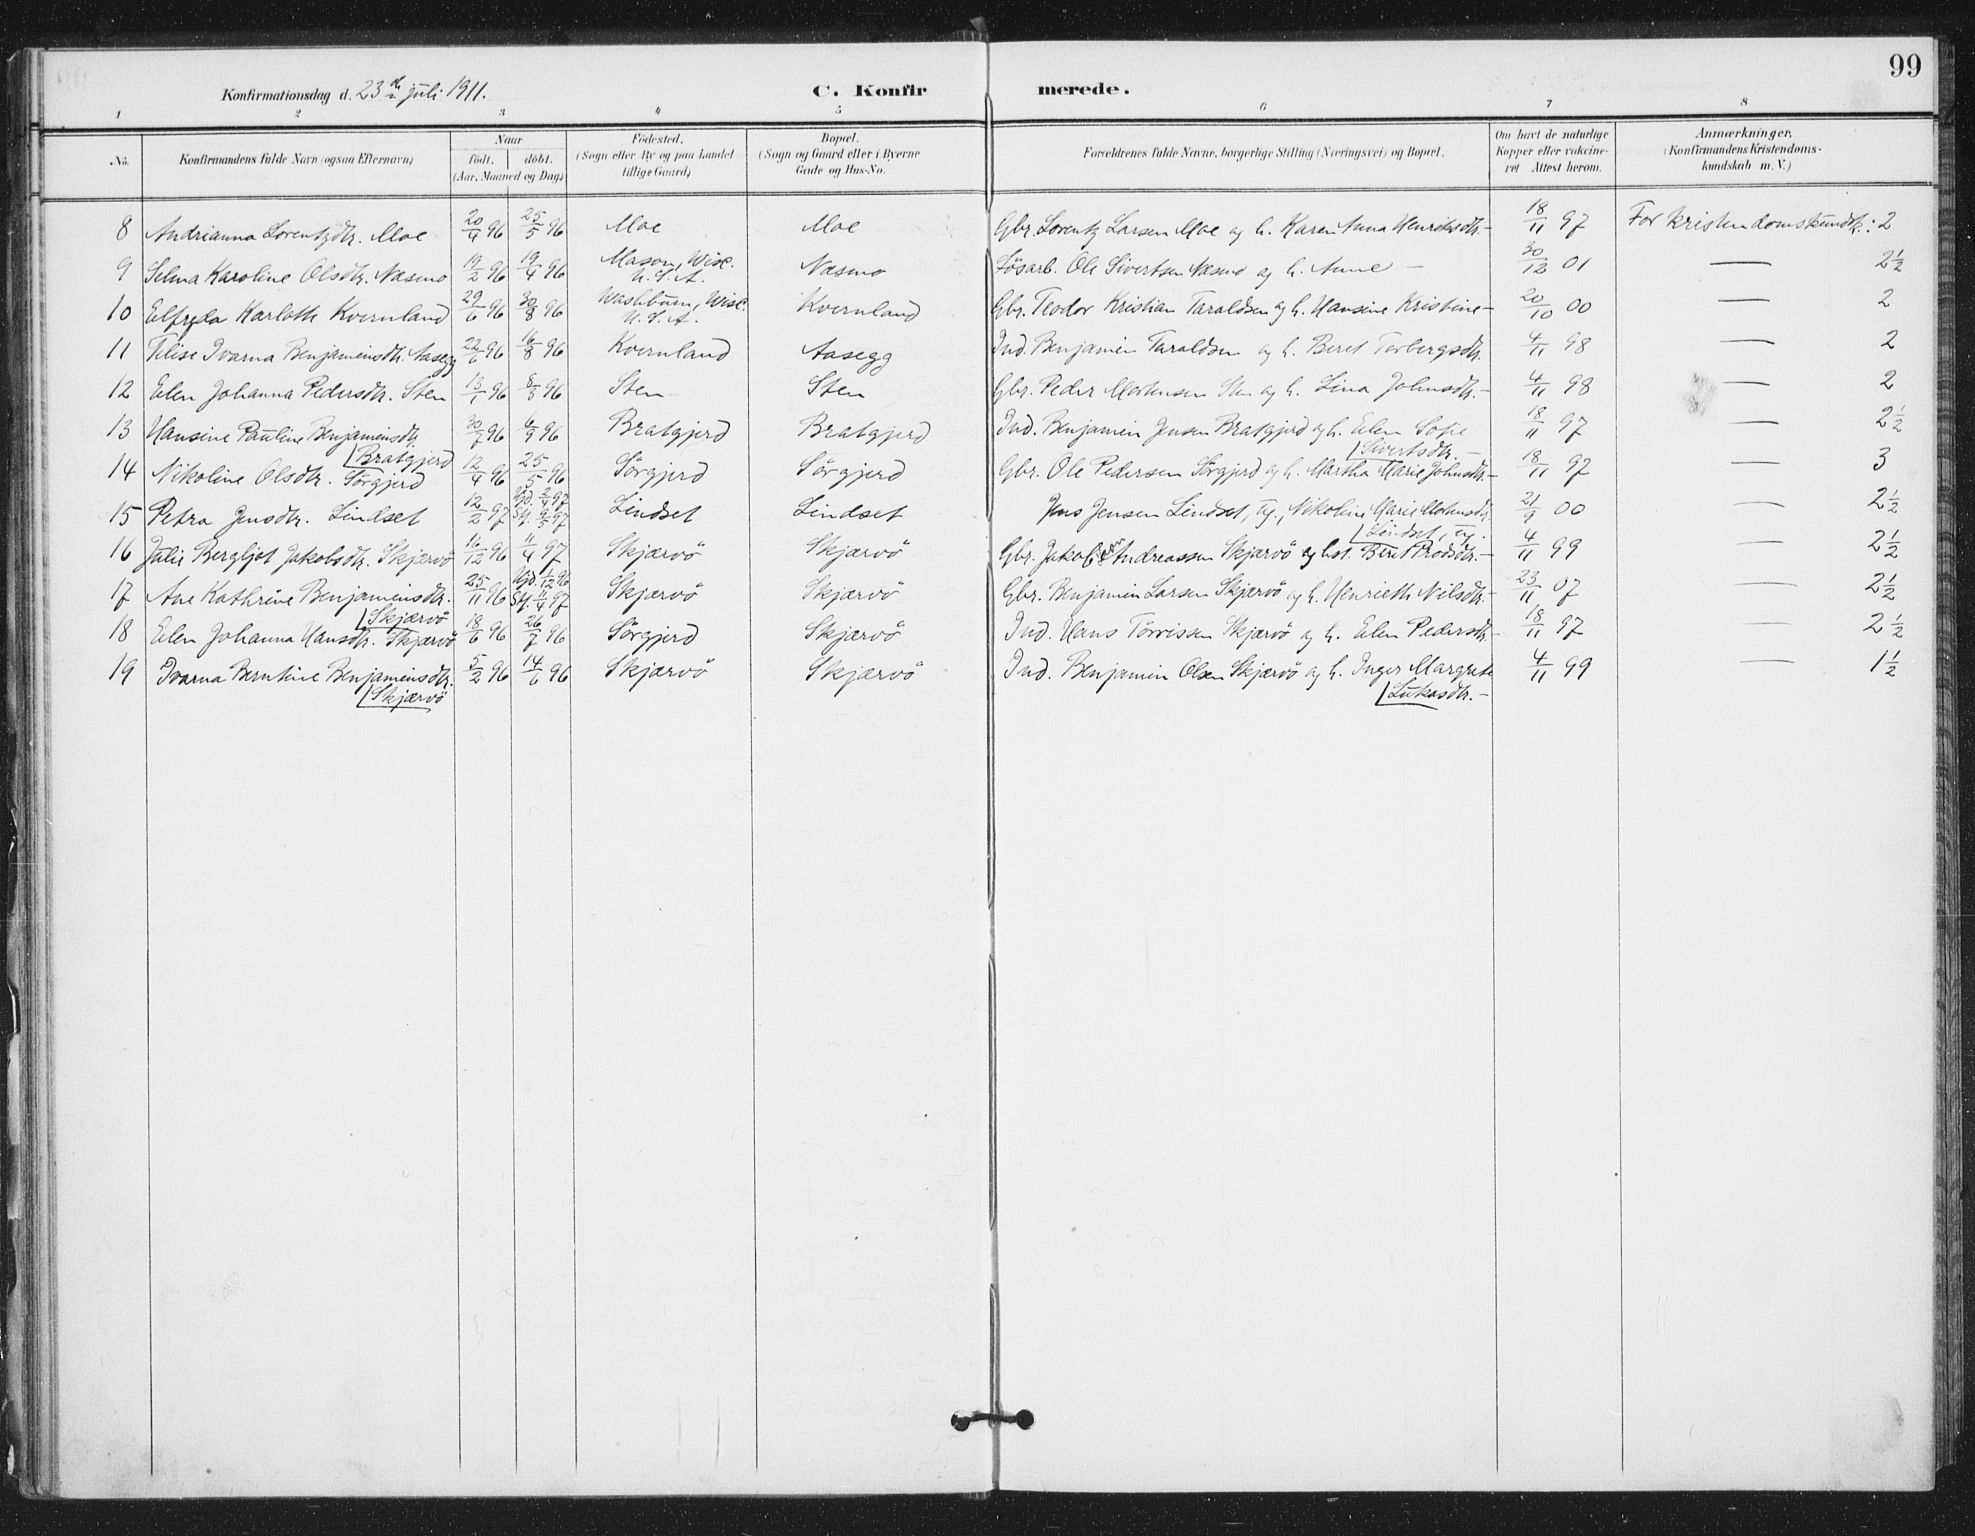 99
Konfirmationsdag d. 23 de juli 1911.
C. Konfirmerede.
1 2 3 4 5 6 7 8
No. Konfirmandens fulde Navn (ogsaa Efternavn) Naar født. døbt. (Aar, Maaned og Dag) Fødested. (Sogn eller By og paa Landet tillige Gaard) Bopæl. (Sogn og Gaard eller i Byerne Gade og Hus-No. Forældrenes fulde Navne, borgerlige Stilling (Næringsvei) og Bopæl. Om havt de naturlige Kopper eller vakcineret Attest herom. Anmærkninger. (Konfirmandens Kristendomskundskab m. V.)
8 Andrianna Lorentzdtr. Moe 20/4 96 25/5 96 Moe Moe Gbr. Lorentz Larsen Moe og h. Karen Anna Henriksdtr.- 18/11 97 For kristendomskundsk.: 2
9 Selma Karoline Olsdtr. Næsmo 19/2 96 19/4 96 Mason, Wisc. U.S.A. Næsmo Løsarb. Ole Sivertsen Næsmo og h. Anne - 30/12 01 — 2 1/2
10 Elfryda Karlotte Kvernland 29/6 96 30/8 96 Washburn, Wisc. U.S.A. Kvernland Gbr. Teodor Kristian Taraldsen og h. Hansine Kristine- 20/10 00 — 2
11 Tilise Ivarna Benjaminsdtr. Aasegg 22/6 96 16/8 96 Kvernland Aasegg Ind. Benjamin Taraldsen og h. Beret Torbergsdtr. 4/11 98 — 2
12 Elen Johanna Pedersdtr. Sten 13/1 96 8/3 96 Sten Sten Gbr. Peder Mortensen Sten og h. Lina Johnsdtr.- 4/11 98 — 2
13 Hansine Pauline Benjaminsdtr. 30/7 96 6/9 96 Bratgjerd Bratgjerd Ind. Benjamin Jensen Bratgjerd og h. Elen Sofie 18/11 97 — 2 1/2
Bratgjerd Sivertsdtr. -
14 Nikoline Olsdtr. Sørgjerd 12/4 96 25/5 96 Sørgjerd Sørgjerd Gbr. Ole Pedersen Sørgjerd og h. Martha Marie Johnsdtr.- 18/11 97 — 3
15 Petra Jensdtr. Lindset 12/2 97 Hjd. 2/4 97 Lindset Lindset Jens Jensen Lindset, ug., Nikoline Marie 21/9 00 — 2 1/2
Lindset, ug.
16 Julie Bergljot Jakobsdtr. Skjærvø 16/12 96 11/4 97 Skjærvø Skjærvø Gbr. Jakob Andreassen Skjærvø og hst. Beret 4/11 99 — 2 1/2
17 Ane Kathrine Benjaminsdtr. 25/11 96 Hjd. 1/12 96 St. 11/4 97 Skjærvø Skjærvø Gbr. Benjamin Larsen Skjærvø og h. Henriette Nilsdtr.- 23/11 07 — 2 1/2
Skjærvø
18 Elen Johanna Hansdtr. Skjærvø 18/6 96 26/7 96 Sørgjerd Skjærvø Ind. Hans Tørrissen Skjærvø og h. Elen Pedersdtr.- 18/11 97 — 2 1/2
19 Ivarna Berntine Benjaminsdtr. 5/2 96 14/6 96 Skjærvø Skjærvø Ind. Benjamin Olsen Skjærvø og h. Inger Margrete 4/11 99 — 1 1/2
Skjærvø Lukasdtr. -